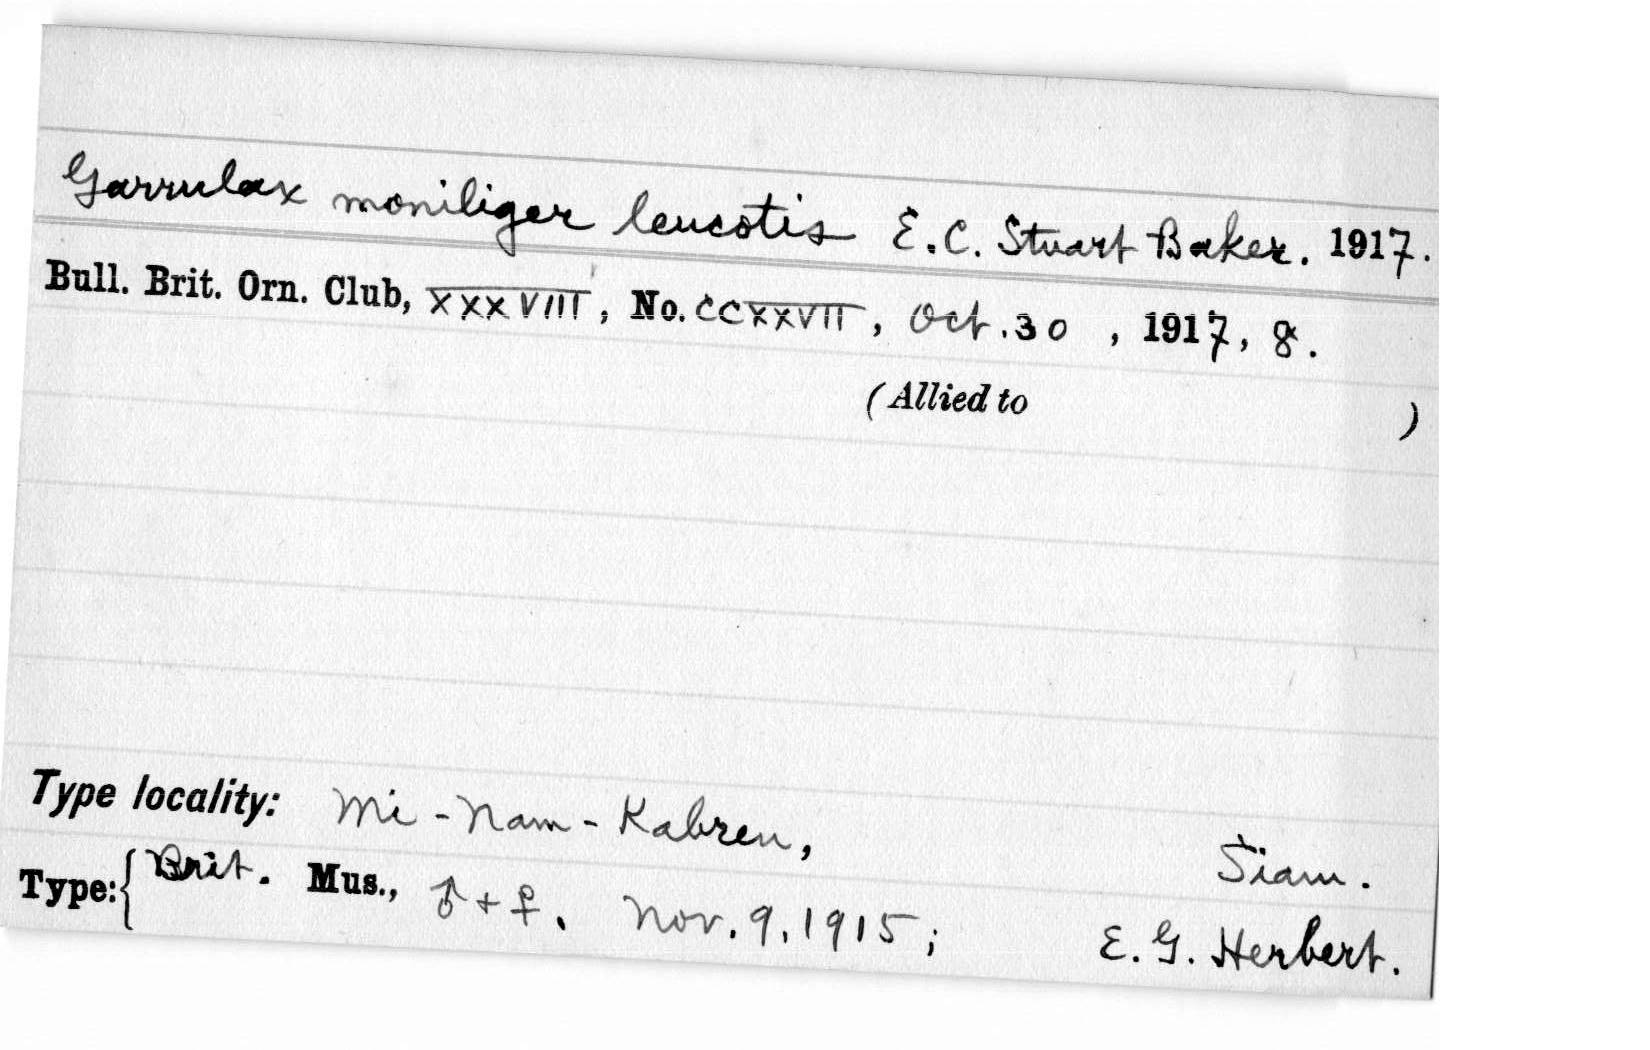 Garrulax moniliger leucotis E. C. Stuart Baker. 1917.
Bull. Brit. Orn. Club, XXXVIII, No. CCXXVII, Oct. 30, 1917, 8.
(Allied to )
Type locality: Mi-Nam-Kabren, Siam.
Type: { Brit. Mus., ♂ + ♀. Nov. 9, 1915; E. G. Herbert.